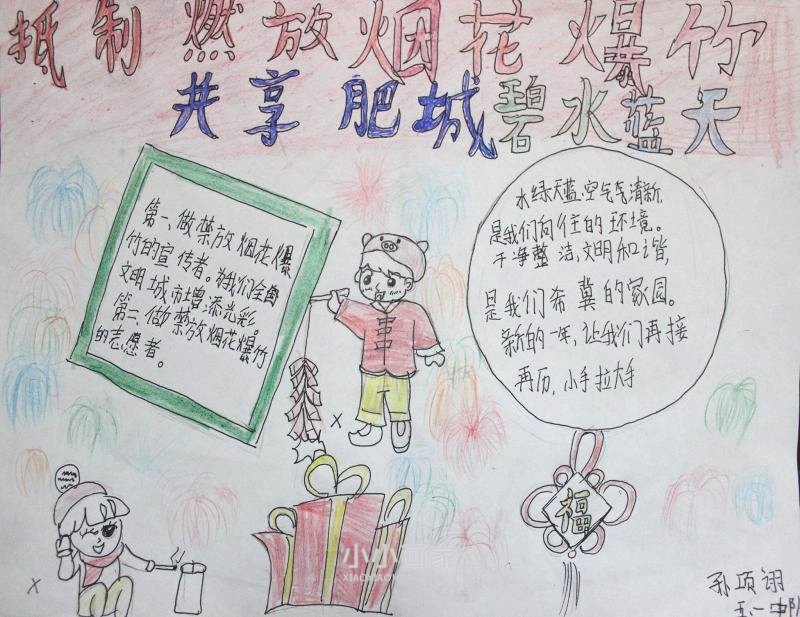 抵制燃放烟花爆竹
共享肥城碧水蓝天
第一、做禁放烟花爆
竹的宣传者。为我们全国
文明城市增添光彩。
第二、做禁放烟花爆竹
的志愿者。
水绿天蓝,空气清新,
是我们向往的环境。
干净整洁,文明和谐,
是我们希冀的家园。
新的一年,让我们再接
再历,小手拉大手
X
福
X
小小画家
XIAOXIAOHUA
孙项诩
五一中队